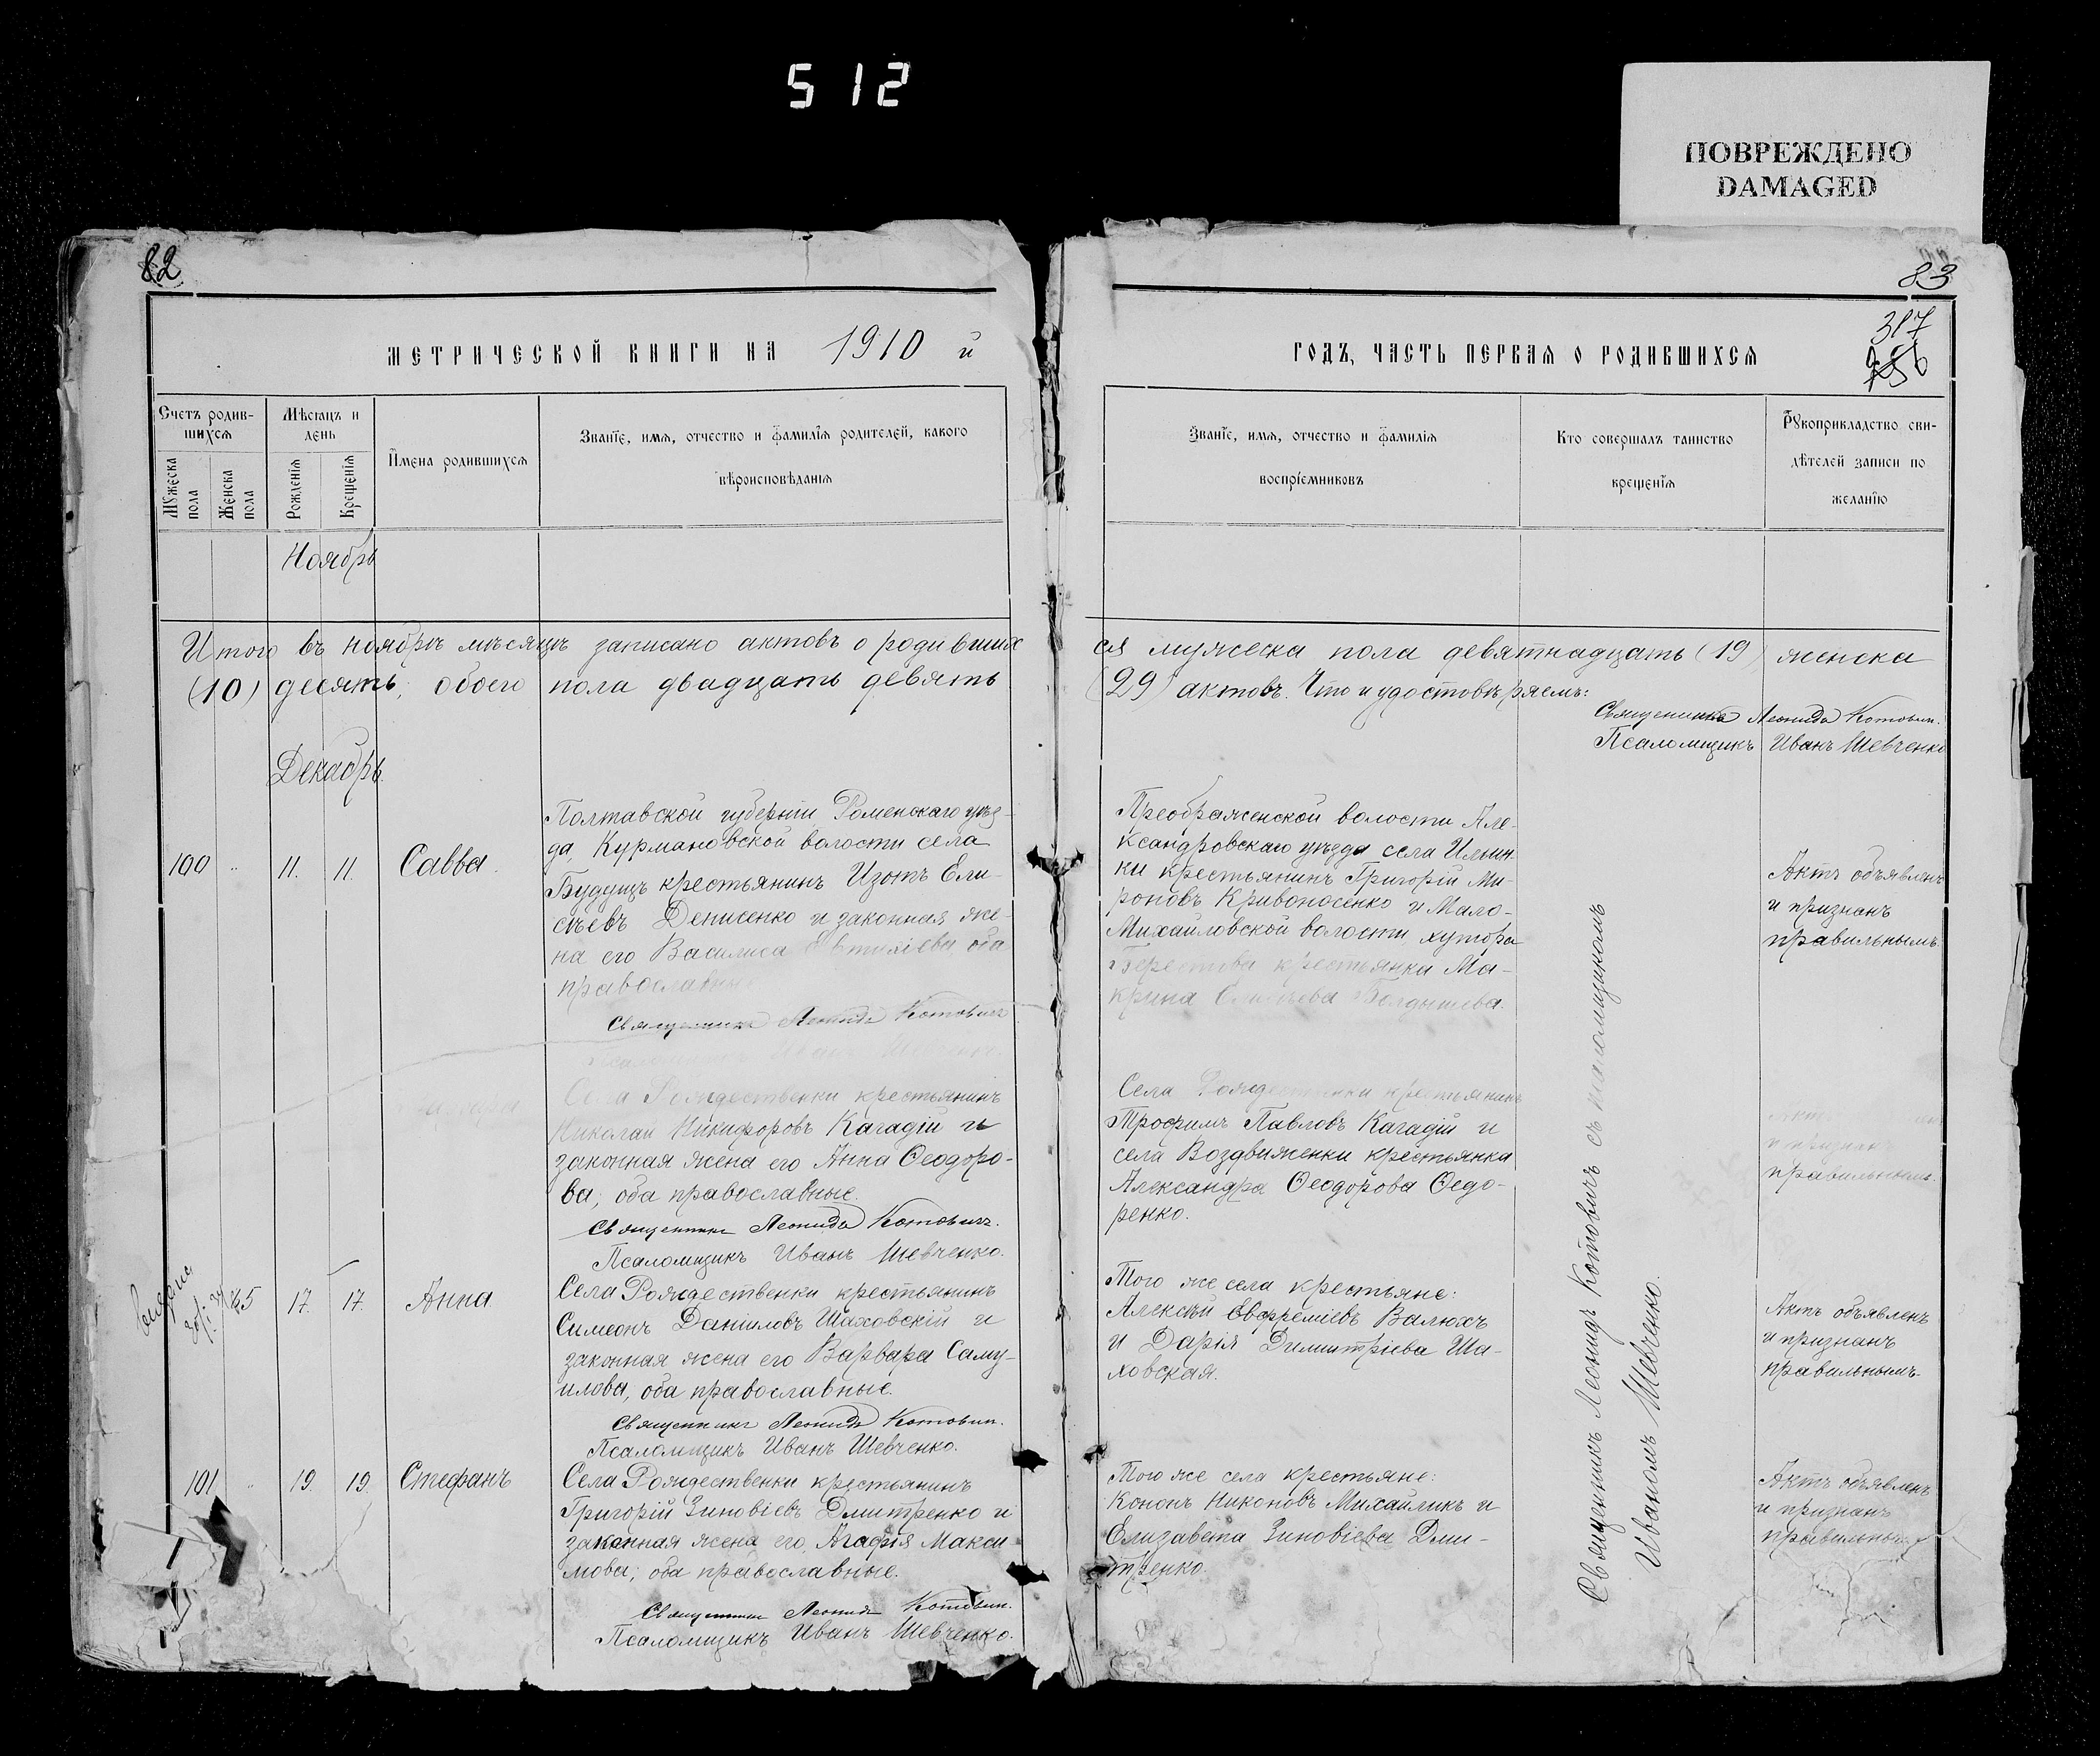 512
ПОВРЕЖДЕНО
DAMAGED
82
МЕТРИЧЕСКОЙ КНИГИ НА 1910 й
Счетъ родив-
шихся
Мѣсяцъ и
день
Имена родившихся
Званіе, имя, отчество и фамилія родителей, какого
вѣроисповѣданія
Мужеска
пола
Женска
пола
Рожденія
Крещенія
Ноябрь
Итого въ ноябрѣ мѣсяцѣ записано актовъ о родивших
(10) десять, обоего пола двадцать девять
Декабрь
100 " 11. 11. Савва.
Полтавской губерніи, Роменскаго уѣз-
да, Курмановской волости села
Будущъ крестьянинъ Изотъ Ели-
сѣевъ Денисенко и законная же-
на его Василиса Евтихіева, оба
православные
Священникъ Леонидъ Котовичъ
Села Рождественки крестьянинъ
Николай Никифоровъ Кагадій и
законная жена его Анна Ѳеодоро-
ва, оба православные.
Священникъ Леонидъ Котовичъ.
Псаломщикъ Иванъ Шевченко.
17. 17. Анна
Села Рождественки крестьянинъ
Симеонъ Даниловъ Шаховскій и
законная жена его Варвара Саму-
илова, оба православные.
Священникъ Леонидъ Котовичъ.
Псаломщикъ Иванъ Шевченко.
101 " 19. 19. Стефанъ
Села Рождественки крестьянинъ
Григорій Зиновіевъ Дмитренко и
законная жена его, Агафія Макси-
мова, оба православные.
Священникъ Леонидъ Котовичъ.
Псаломщикъ Иванъ Шевченко.
83
317
ГОДЪ, ЧАСТЬ ПЕРВАЯ О РОДИВШИХСЯ
Званіе, имя, отчество и фамилія
воспріемниковъ
Кто совершалъ таинство
крещенія
Рукоприкладство сви-
дѣтелей записи по
желанію
ся мужеска пола девятнадцать (19) женска
(29) актовъ. Что и удостовѣряемъ:
Священникъ Леонидъ Котовичъ.
Псаломщикъ Иванъ Шевченко
Преображенской волости Але-
ксандровскаго уѣзда села Ильин-
ки крестьянинъ Григорій Ми-
роновъ Кривоносенко и Мало-
Михайловской волости хутора
крестьянка Ма-
крина Елисѣева
Акть объявленъ
и признанъ
правильнымъ
Села Рождественки крестьянинъ
Трофимъ Павловъ Кагадій и
села Воздвиженки крестьянка
Александра Ѳеодорова Ѳедо-
ренко.
и признанъ
правильнымъ.
Того же села крестьяне:
Алексѣй Евфреміевъ Валюхъ
и Дарія Димитріева Ша-
ховская.
Актъ объявленъ
и признанъ
правильнымъ.
Того же села крестьяне:
Кононъ Никоновъ Михайликъ и
Елизавета Зиновіева Дми-
тренко.
Актъ объявленъ
и признанъ
правильнымъ
Священникъ Леонидъ Котовичъ съ псаломщикомъ
Иваномъ Шевченко.